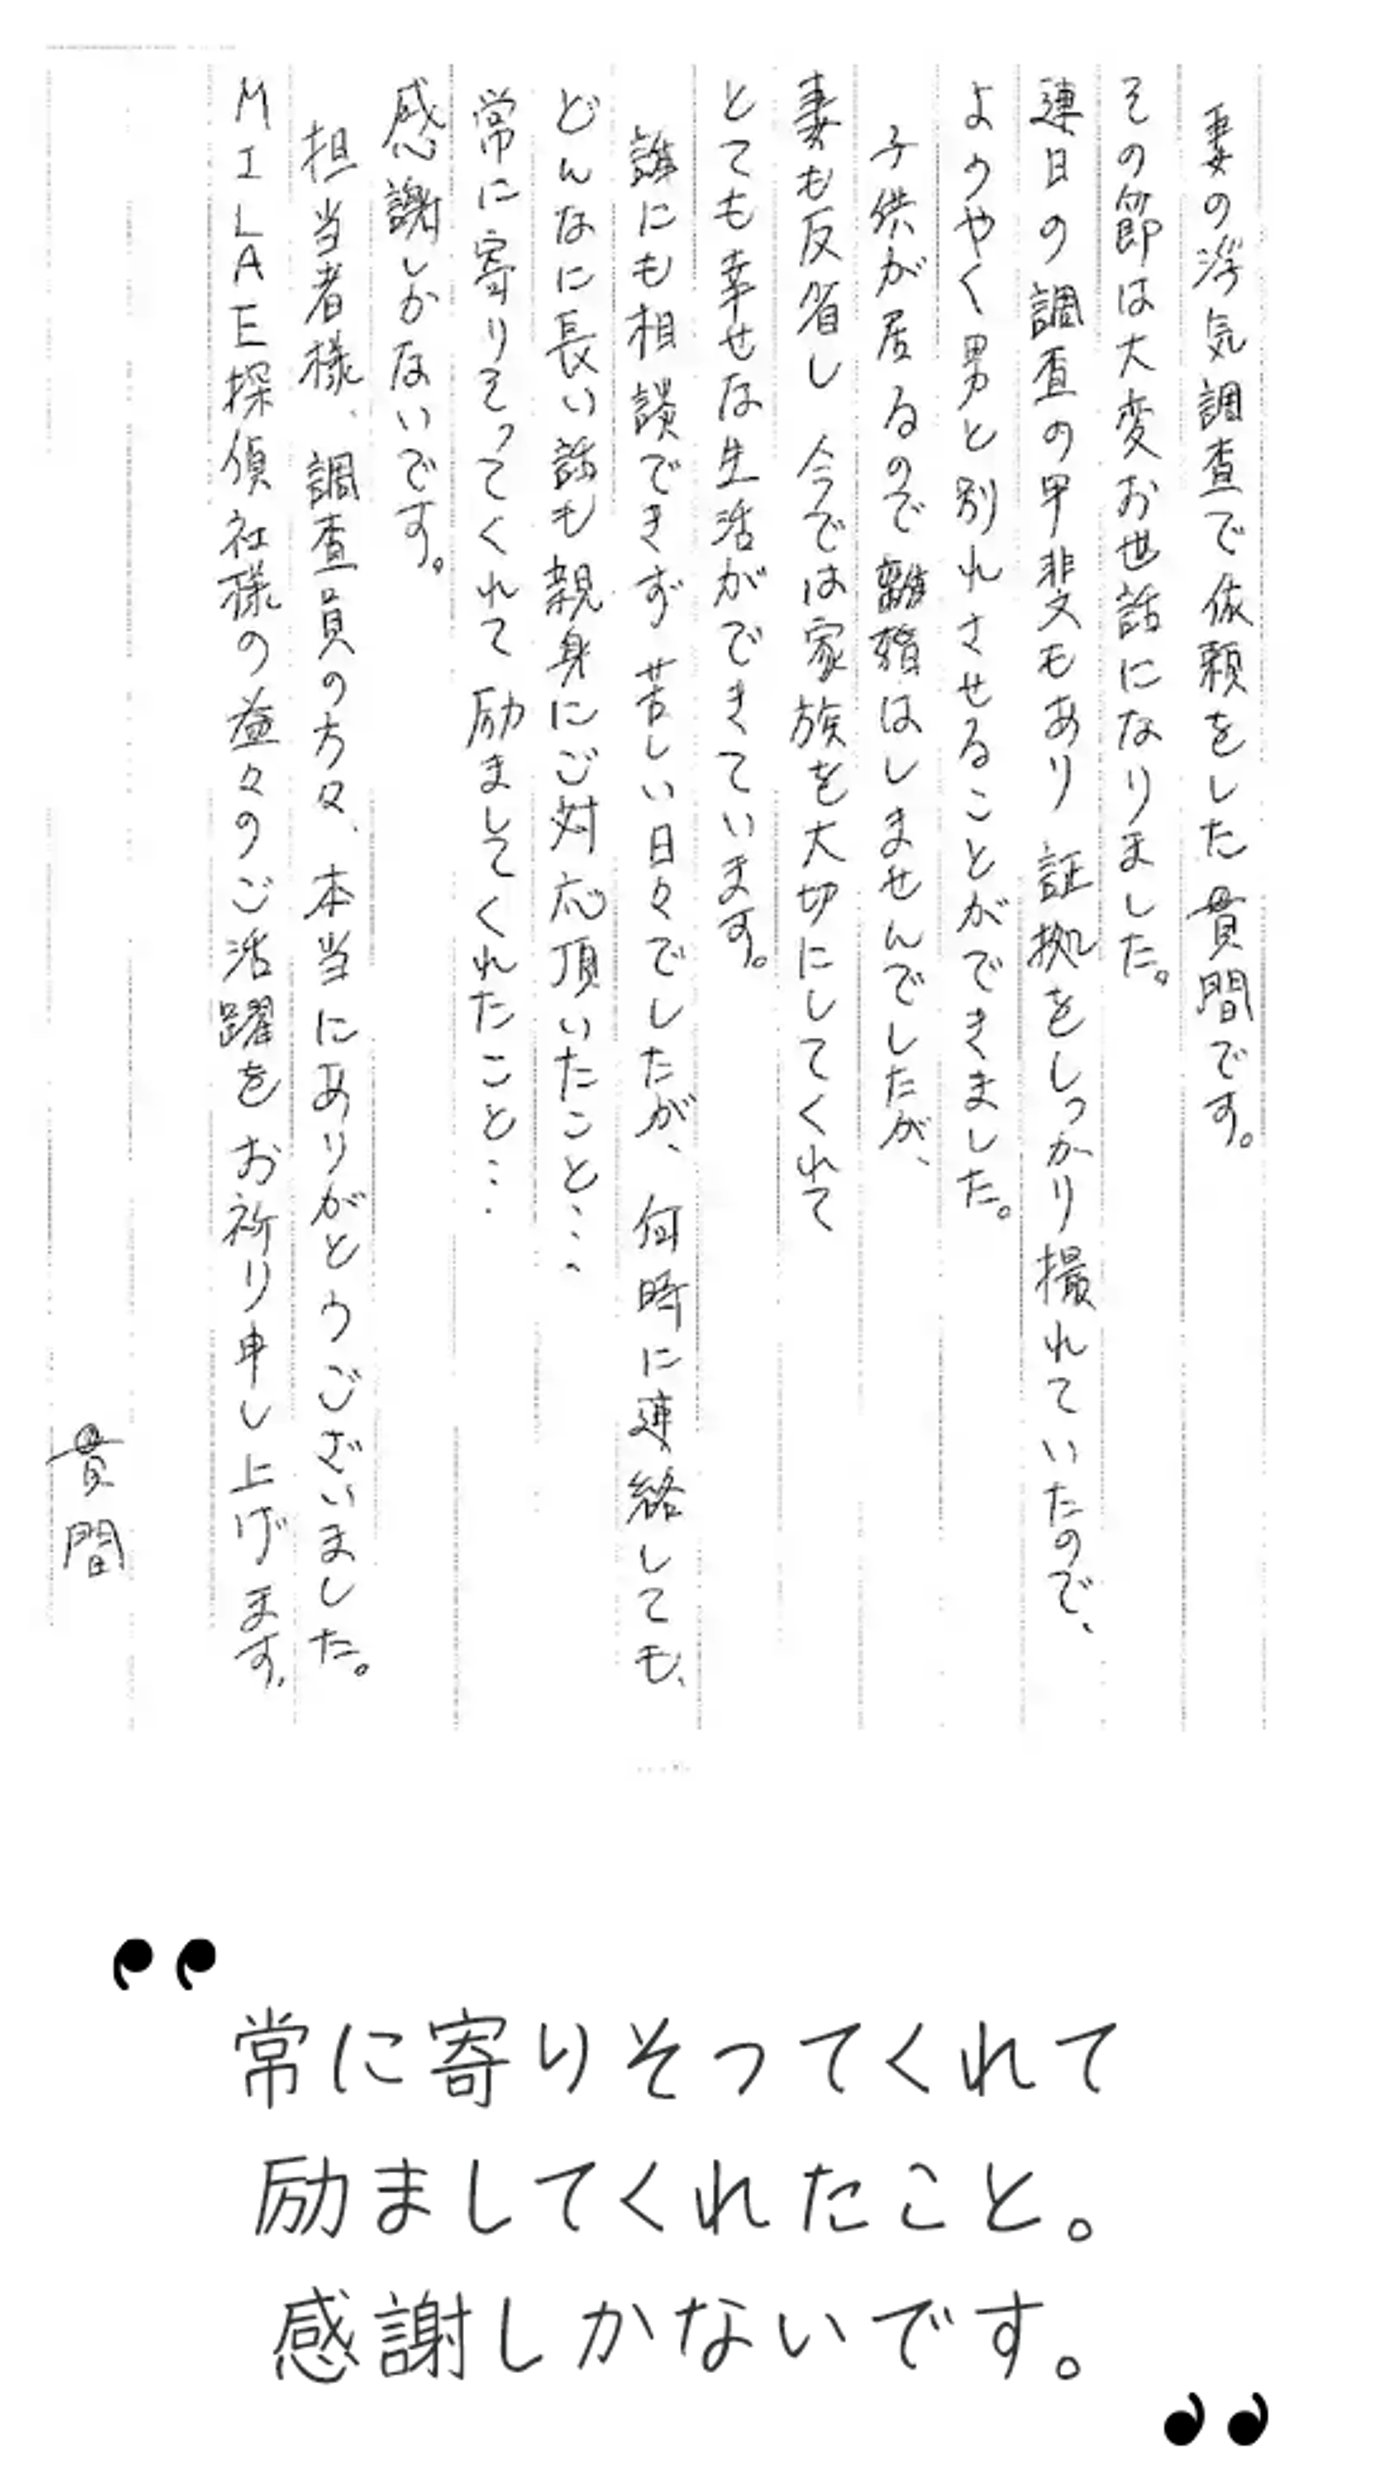 妻の浮気調査で依頼をした貫間です。
その節は大変お世話になりました。
連日の調査の甲斐もあり 証拠をしっかり撮れていたので、
ようやく男と別れさせることができました。
子供が居るので離婚はしませんでしたが、
妻も反省し 今では家族を大切にしてくれて
とても幸せな生活ができています。
誰にも相談できず苦しい日々でしたが、何時に連絡しても、
どんなに長い話も親身にご対応頂いたこと…
常に寄りそってくれて励ましてくれたこと…
感謝しかないです。
担当者様、調査員の方々、本当にありがとうございました。
MILAE探偵社様の益々のご活躍をお祈り申し上げます。
貫間
“常に寄りそってくれて
励ましてくれたこと。
感謝しかないです。”